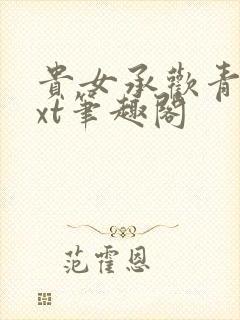 貴女承歡青
xt筆趣閣
范霍恩